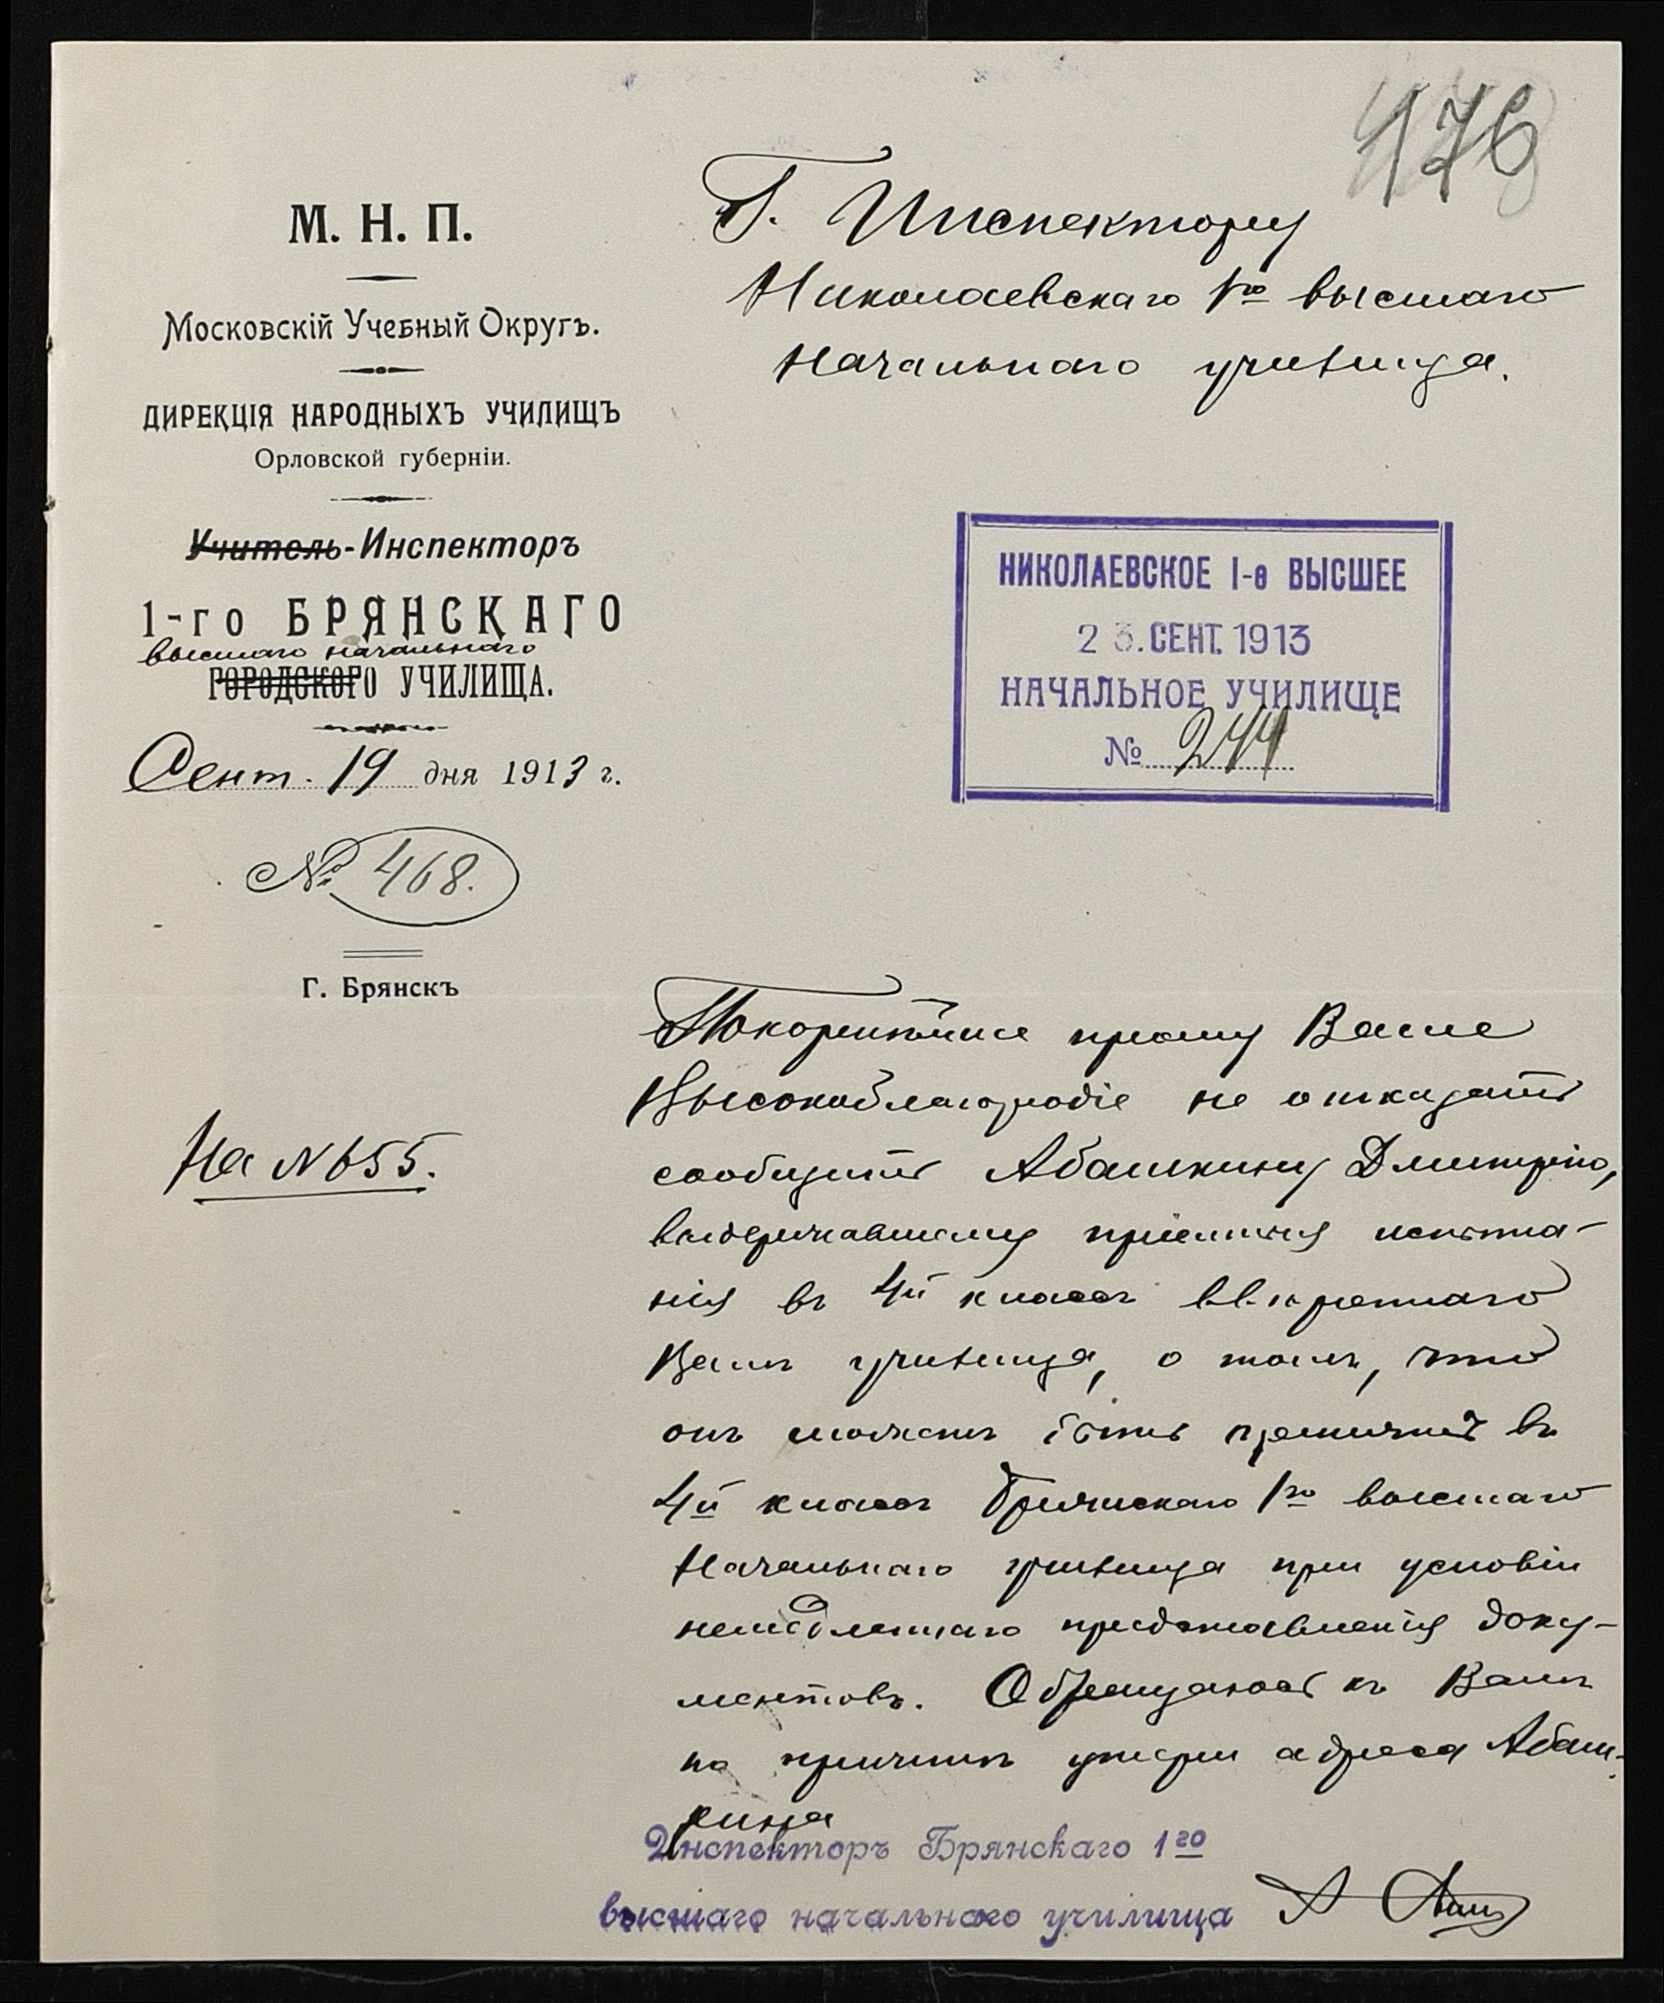 176
М. Н. П.
Московскій Учебный Округъ.
ДИРЕКЦІЯ НАРОДНЫХЪ УЧИЛИЩЪ
Орловской губерніи.
Учитель-Инспекторъ
1-го БРЯНСКАГО
высшаго начальнаго
ГОРОДСКОГО УЧИЛИЩА.
Сент. 19 дня 1913 г.
№ 468.
Г. Брянскъ
На № 655.
Г. Инспектору
Николаевскаго 1го высшаго
Начальнаго училища.
НИКОЛАЕВСКОЕ 1-е ВЫСШЕЕ
23.СЕНТ.1913
НАЧАЛЬНОЕ УЧИЛИЩЕ
№ 244
Покорнѣйше прошу Ваше
Высокоблагородіе не отказать
сообщить Абашкину Дмитрію,
выдержавшему пріемныя испыта-
нія въ 4й классъ ввѣреннаго
Вамъ училища, о томъ, что
онъ можетъ быть принятъ въ
4й классъ Брянскаго 1го высшаго
Начальнаго училища при условіи
немедленнаго представленія доку-
ментовъ. Обращаюсь къ Вамъ
по причинѣ утери адреса Абаш-
кина
Инспекторъ Брянскаго 1го
высшаго начальнаго училища